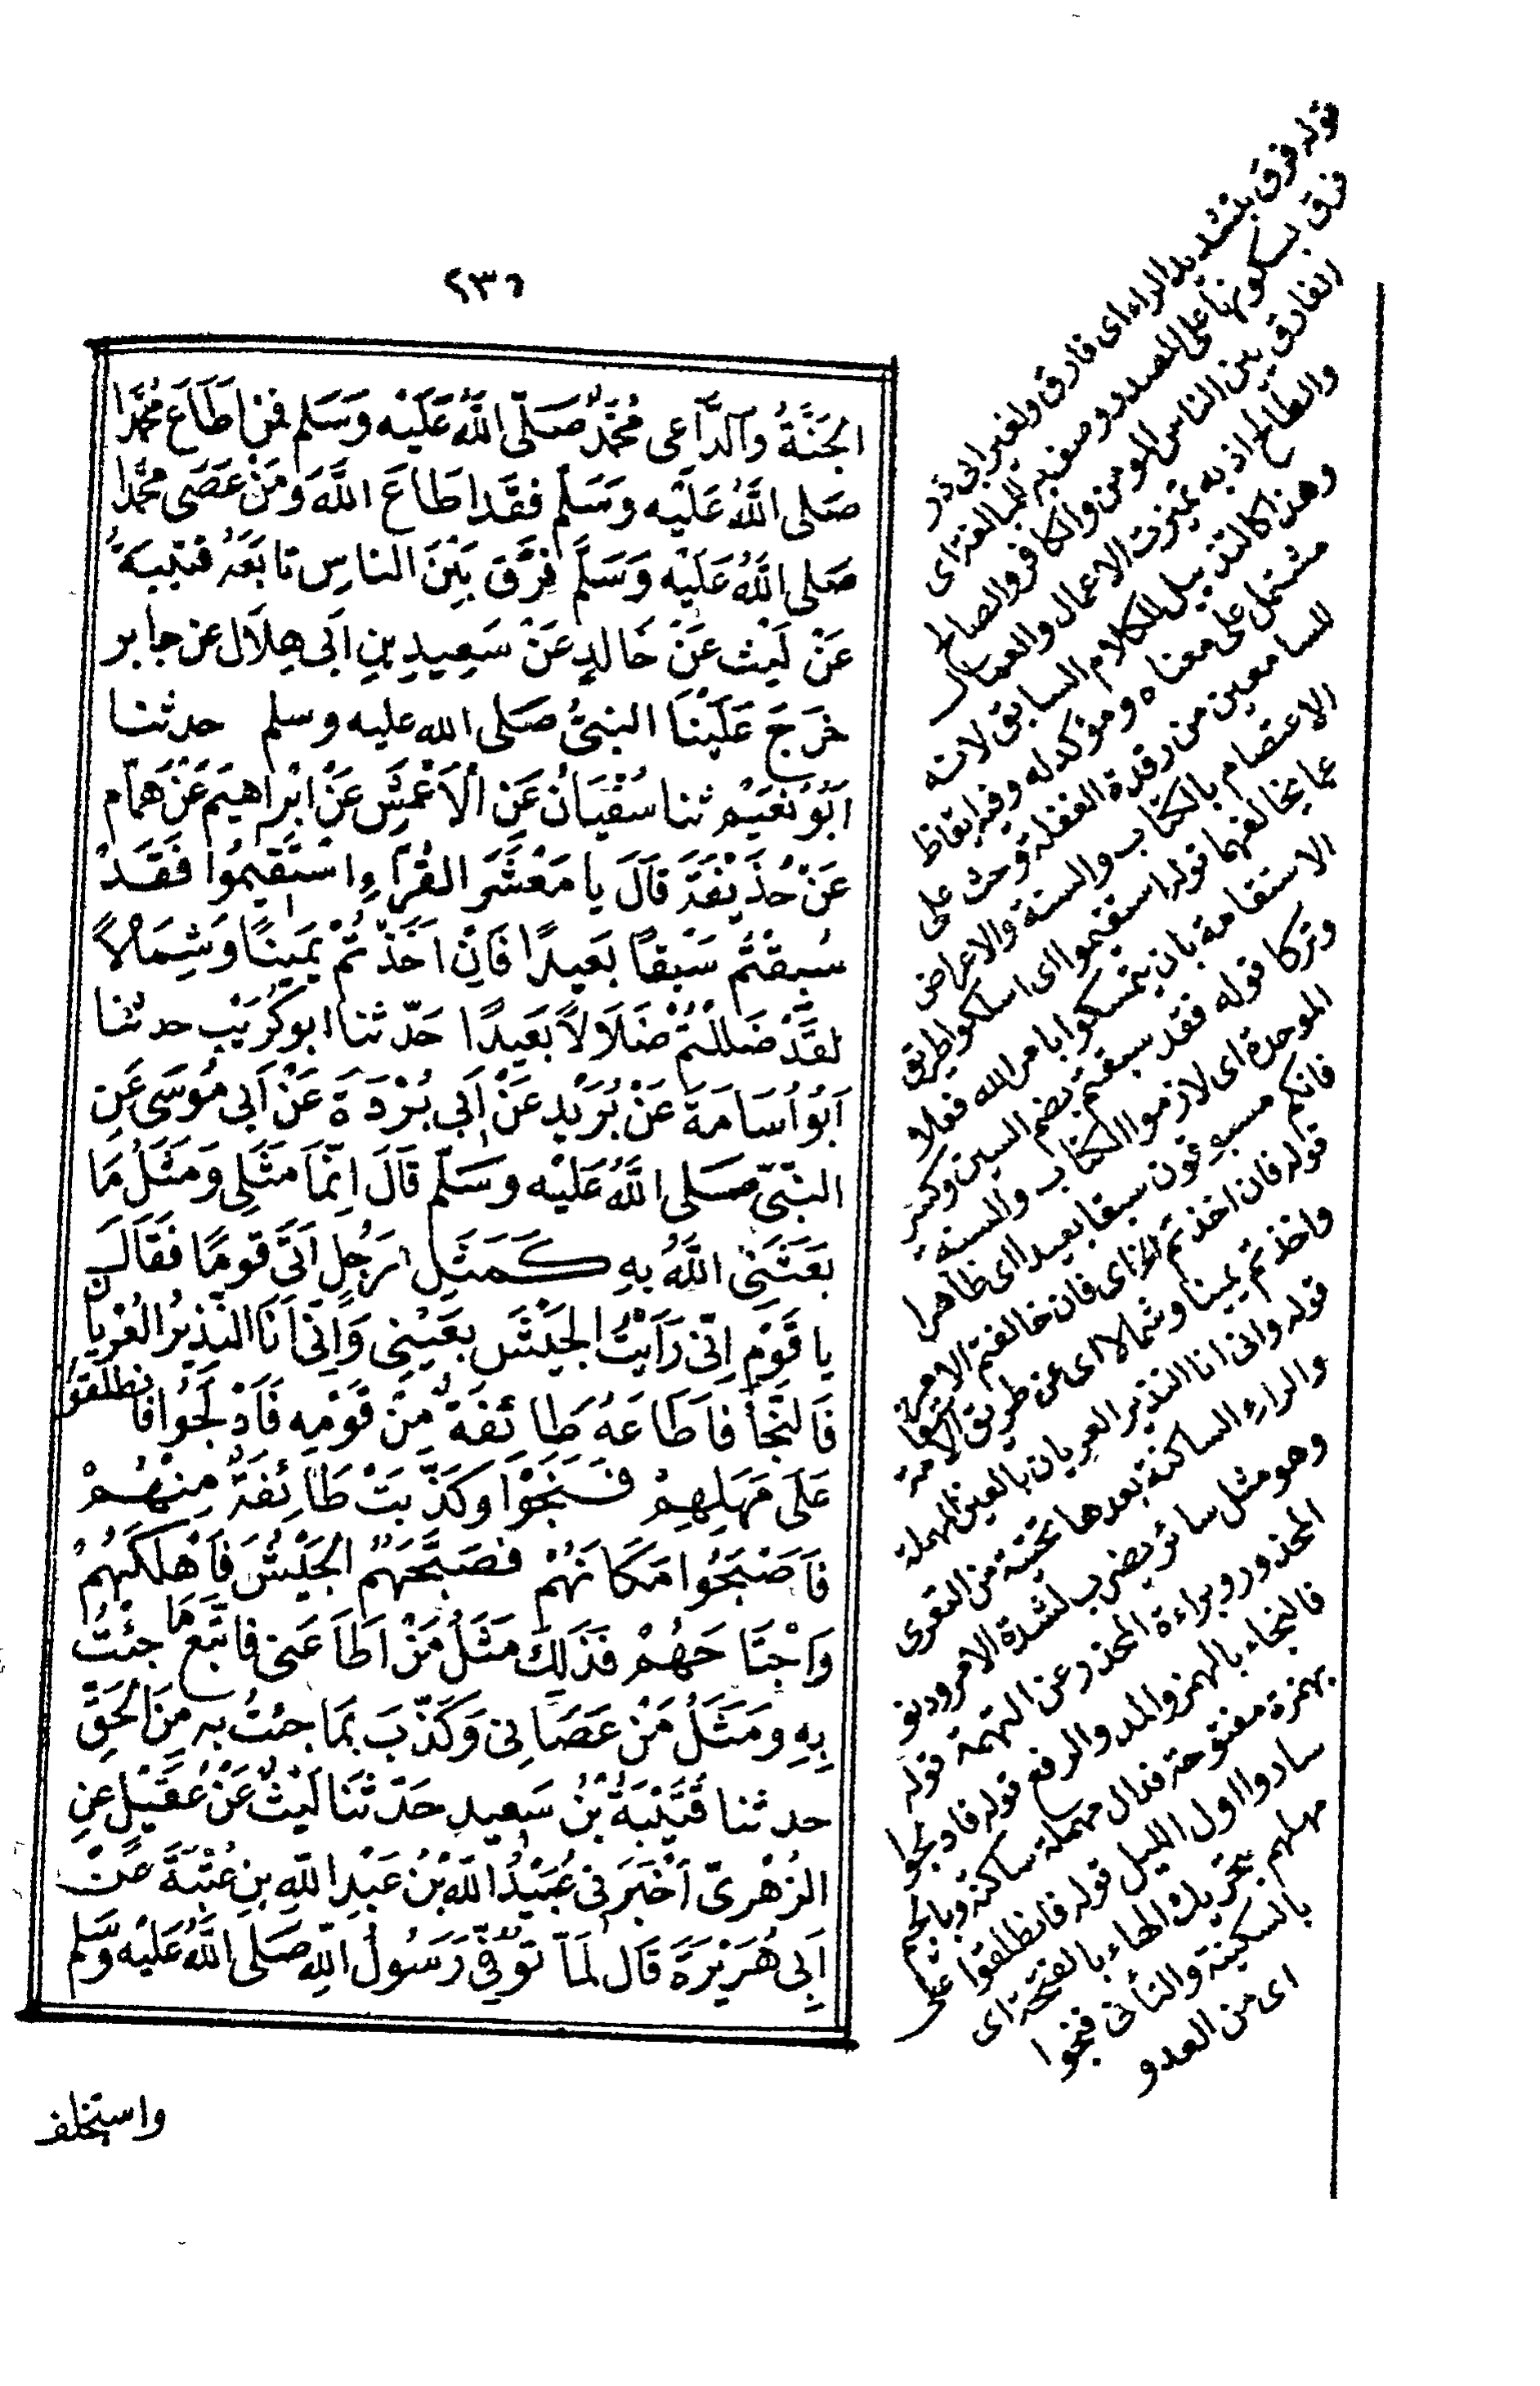 ٢٣٦
الجَنَّةُ وَالدَّاعِى مُحَمَّدٌ صَلّى اللهُ عَلَيْه وَسَلم فمَن اَطَاعَ مُحَمَّدًا
صَلى اللهُ عَلَيْه وَسَلّم فقَد اطَاعَ اللهَ وَمَنْ عَصَى محَمَّدًا
صَلى اللهُ عَلَيْه وَسَلّمَ فَرَّقَ بَيْنَ الناسِ تابَعَهُ قتَيْبَةُ
عَنْ لَيْث عَنْ خَالدٍ عَنْ سَعِيدِ بنِ اَبى هِلَال عن جابر
خَرَجَ عَلَيْنَا النبىُّ صَلى الله عليه وسلم حدثنا
اَبُو نُعَيْم ثنا سُفْيَانُ عَن الْاَعْمَشِ عَنْ اِبْرَاهيمَ عَنْ هَمّام
عَنْ حُذَيْفَةَ قَالَ يا مَعْشَرَ القُرَّاءِ اسْتَقيمُوا فَقَدْ
سُبِقْتُمْ سَبْقاً بَعيدًا فَاِنْ اَخَذْتُمْ يَمينًا وَشِمَالاً
لقَدْ ضَلَلْتُمْ ضَلَالاً بَعيدًا حَدّثنا ابو كُرَيْبٍ حدثنا
اَبُو اُسَامَةَ عَنْ بُرَيْدٍ عَنْ اَبِي بُرْدَةَ عَنْ اَبِي مُوسَى عَنِ
النّبىّ صَلى اللهُ عَلَيْه وسَلّم قَالَ اِنّمَا مَثَلِى وَمَثَلُ مَا
بَعَثَنِى اللهُ بِهِ كَمَثَلِ رَجُلٍ اَتَى قومًا فَقَالَ
يا قَوْمِ اِنّى رَاَيْتُ الجَيْشَ بعَيْنِى وَاِنّى اَنَا النَذِيرُ العُرْيَانُ
فَالنَّجَاءَ فاَطَاعَهُ طَائفَةٌ مِنْ قَوْمِه فَاَدْلَجُوا فانطلقوا
عَلَى مَهَلِهِمْ فَنَجَوْا وَكَذّبَتْ طَائِفَةٌ مِنْهُمْ
فَاَصْبَحُوا مَكَانَهُمْ فصَبَّحَهُم الجَيْشُ فَاَهْلَكَهُمْ
وَاجْتَاحَهُمْ فَذَلِكَ مَثَلُ مَنْ اَطَاعَنى فاتَّبَعَ مَا جئْتُ
بِهِ وَمَثَلُ مَنْ عَصَانِى وَكَذّبَ بمَا جئتُ بِه مِنَ الحَقّ
حدثنا قُتَيْبَةُ بْنُ سَعِيدٍ حَدّثَنَا لَيْثٌ عَنْ عُقَيْلٍ عنِ
الزُهْرىّ اَخْبَرَنى عُبَيْدُ اللهِ بْنُ عَبْدِ اللهِ بنِ عُتْبَةَ عَنْ
اَبِى هُرَيْرَةَ قَال لَمّا تُوُفِّيَ رَسُولُ اللهِ صَلى اللهُ عَلَيْه وسَّلم
واستخلف
قوله فرق بتشديد الراء اى فارق ولغير ابى ذر
فرق بسكونها على المصدر وصف به للمبالغة اى
الفارق بين الناس المومن والكافر والصالح
والطالح اذ به تميزت الاعمال والعمال
وهذا كالتذييل للكلام السابق لانه
مشتمل على معناه ومؤكد له وفيه ايقاظ
للسامعين من رقدة الغفلة وحث على
الاعتصام بالكتاب والسنة والاعراض
عما يخالفهما قوله استقيموا اى اسلكوا طريق
الاستقامة بان تتمسكوا بامر الله فعلا
وتركا قوله فقد سبقتم بضم السين وكسر
الموحدة اى لازموا الكتاب والسنة
فانكم مسبوقون سبقا بعيدا اى ظاهرا
قوله فان اخذتم الخ اى فان خالفتم الامر
واخذتم يمينا وشمالا اى عن طريق الاستقامة
قوله وانى انا النذير العريان بالعين المهملة
والراء الساكنة بعدها تحتية من التعرى
وهو مثل سائر يضرب لشدة الامر ودنو
المحذور وبراءة المحذر عن التهمة قوله
فالنجاء بالهمز والمد والرفع قوله فادلجوا
بهمزة مفتوحة فدال مهملة ساكنة وبالجيم
ساروا اول الليل قوله فانطلقوا على
مهلهم بتحريك الهاء بالفتحة اى
بالسكينة والتأنى فنجوا
اى من العدو